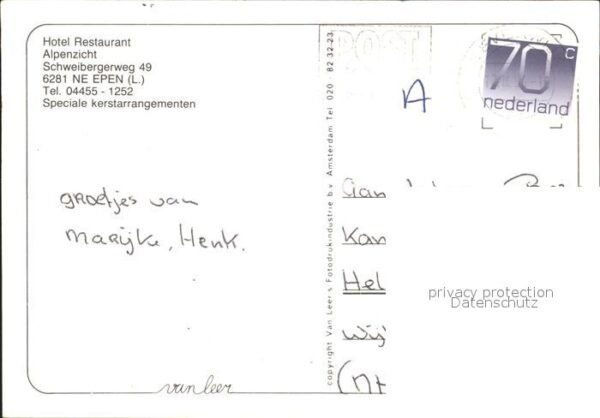 Hotel Restaurant
Alpenzicht
Schweibergerweg 49
6281 NE EPEN (L.)
Tel. 04455 - 1252
Speciale kerstarrangementen
groetjes van
Marijke, Henk.
van leer
copyright Van Leer's Fotodrukindustrie b.v. Amsterdam Tel. 020 - 82 32 23
POST
70 c
nederland
A
Aan
Kan
Hel
Wij
privacy protection
Datenschutz